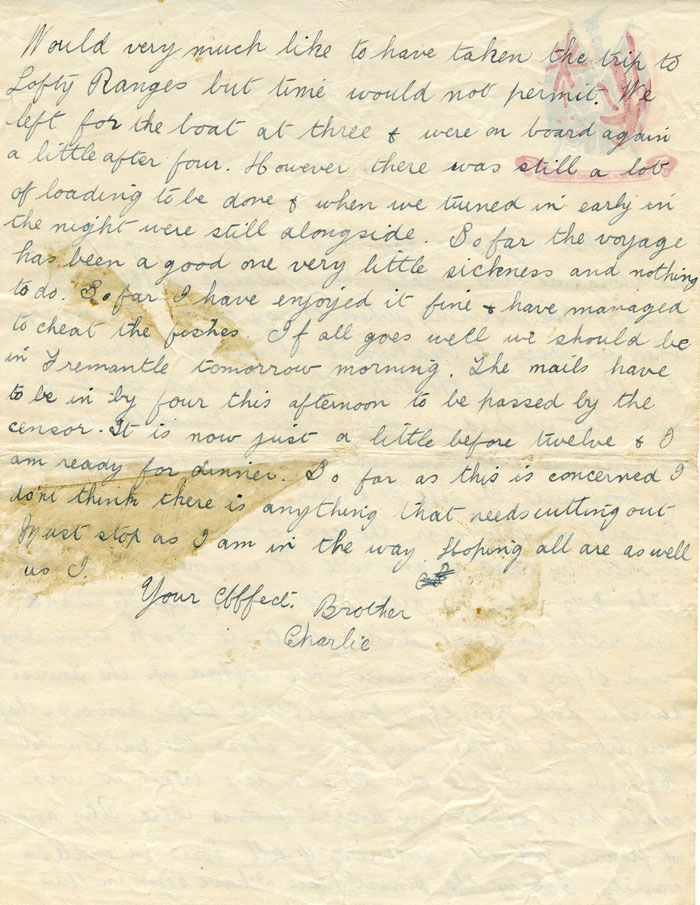 Would very much like to have taken the trip to
Lofty Ranges but time would not permit. We
left for the boat at three & were on board again
a little after four. However there was still a lot
of loading to be done & when we turned in early in
the night were still alongside. So far the voyage
has been a good one very little sickness and nothing
to do. So far I have enjoyed it fine & have managed
to cheat the fishes. If all goes well we should be
in Fremantle tomorrow morning. The mails have
to be in by four this afternoon to be passed by the
censor. It is now just a little before twelve & I
am ready for dinner. So far as this is concerned I
don't think there is anything that needs cutting out
Must stop as I am in the way. Hoping all are as well
as I.
Your Affect. Brother
Charlie